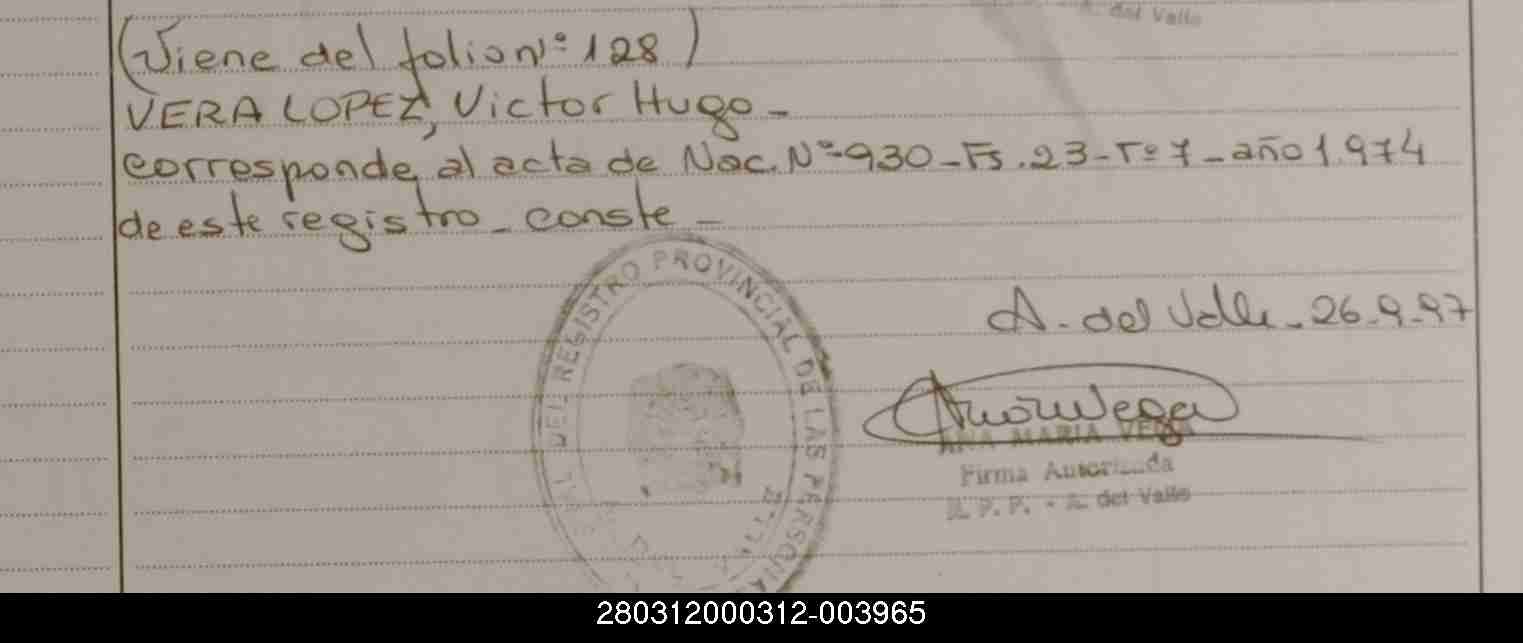 A. del Valle
(Viene del folio nº 128)
VERA LOPEZ, Victor Hugo -
corresponde al acta de Nac. Nº 930 - Fs. 23 - Tº 7 - año 1.974
de este registro - conste -
DEL REGISTRO PROVINCIAL DE LAS PERSONAS
A. del Valle - 26-9-97
ANA MARIA VEGA
Firma Autorizada
R. P. P. - A. del Valle
280312000312-003965